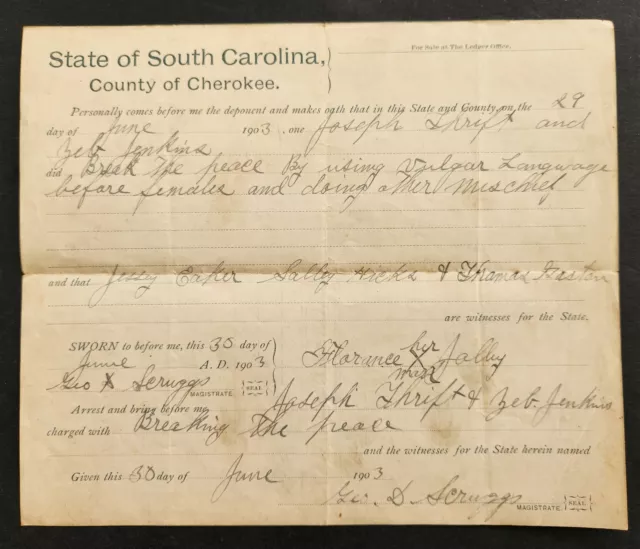 For Sale at The Ledger Office.
State of South Carolina,
County of Cherokee.
Personally comes before me the deponent and makes oath that in this State and County, on the 29
day of June 1903, one Joseph Thrift and
Zeb Jenkins
did Break The peace By using Vulgar Language
before females and doing other mischief
and that Jessy Eaker Salby Hicks & Thamas Gaston
are witnesses for the State.
SWORN to before me, this 30 day of
June A. D. 1903
Geo X Scruggs
MAGISTRATE. SEAL
Florance her X mark Jolly
Arrest and bring before me Joseph Thrift & Zeb. Jenkins
charged with Breaking The peace
and the witnesses for the State herein named
Given this 30 day of June 1903
Geo. D. Scruggs
MAGISTRATE. SEAL